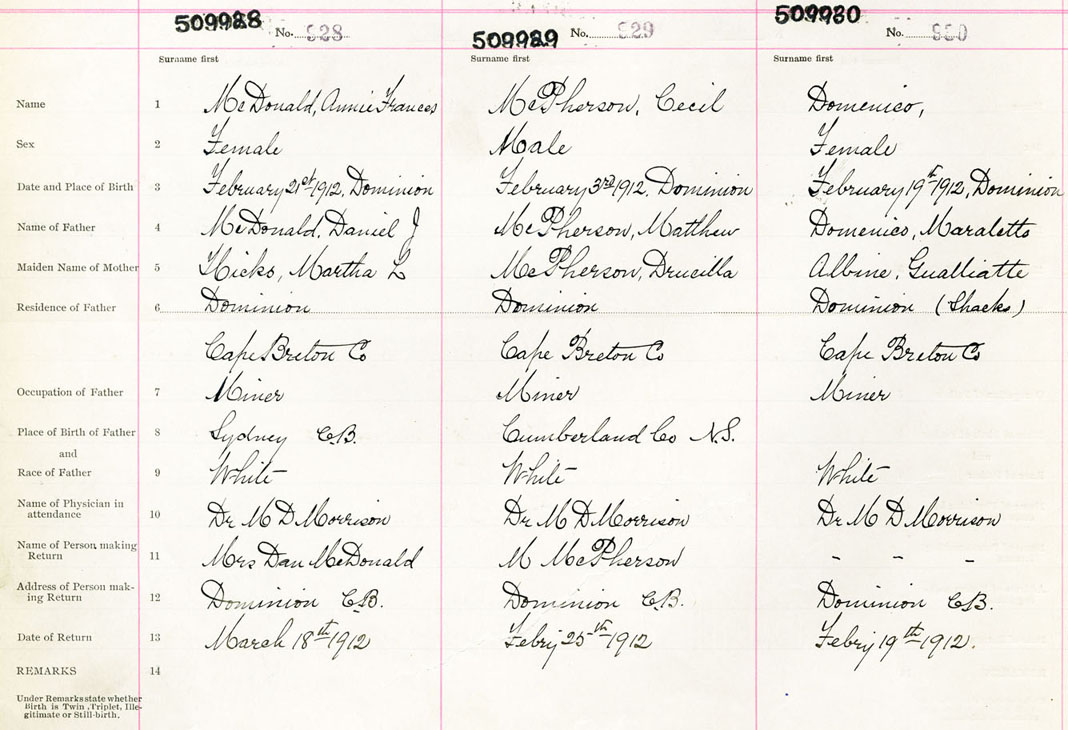 509928 No. 928 509929 No. 929 509930 No. 930
Surname first Surname first Surname first
Name 1 McDonald, Annie Frances McPherson, Cecil Domenico,
Sex 2 Female Male Female
Date and Place of Birth 3 February 21st 1912, Dominion February 3rd 1912. Dominion February 19th 1912, Dominion
Name of Father 4 McDonald, Daniel J McPherson, Matthew Domenico, Maraletto
Maiden Name of Mother 5 Hicks, Martha L McPherson, Drucilla Albine, Gualliatte
Residence of Father 6 Dominion Dominion Dominion (Shacks)
Cape Breton Co Cape Breton Co Cape Breton Co
Occupation of Father 7 Miner Miner Miner
Place of Birth of Father 8 Sydney C.B. Cumberland Co N.S.
and
Race of Father 9 White White White
Name of Physician in
attendance 10 Dr M D Morrison Dr M D Morrison Dr M D Morrison
Name of Person making
Return 11 Mrs Dan McDonald M McPherson - - -
Address of Person mak-
ing Return 12 Dominion C.B. Dominion C.B. Dominion C.B.
Date of Return 13 March 18th 1912 Febry 25th 1912 Febry 19th 1912.
REMARKS 14
Under Remarks state whether
Birth is Twin, Triplet, Ille-
gitimate or Still-birth.